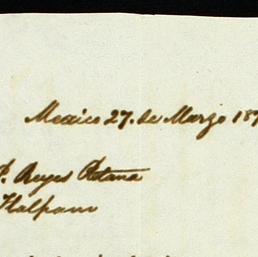 Mexico 27. de Marzo 187
P. Reyes Retana
Tlalpam